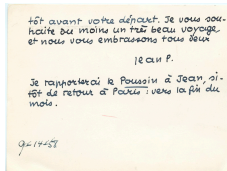 tôt avant votre départ. Je vous sou-
haite du moins un très beau voyage
et nous vous embrassons tous deux
Jean P.
Je rapporterai le Poussin à Jean, si-
tôt de retour à Paris : vers la fin du
mois.